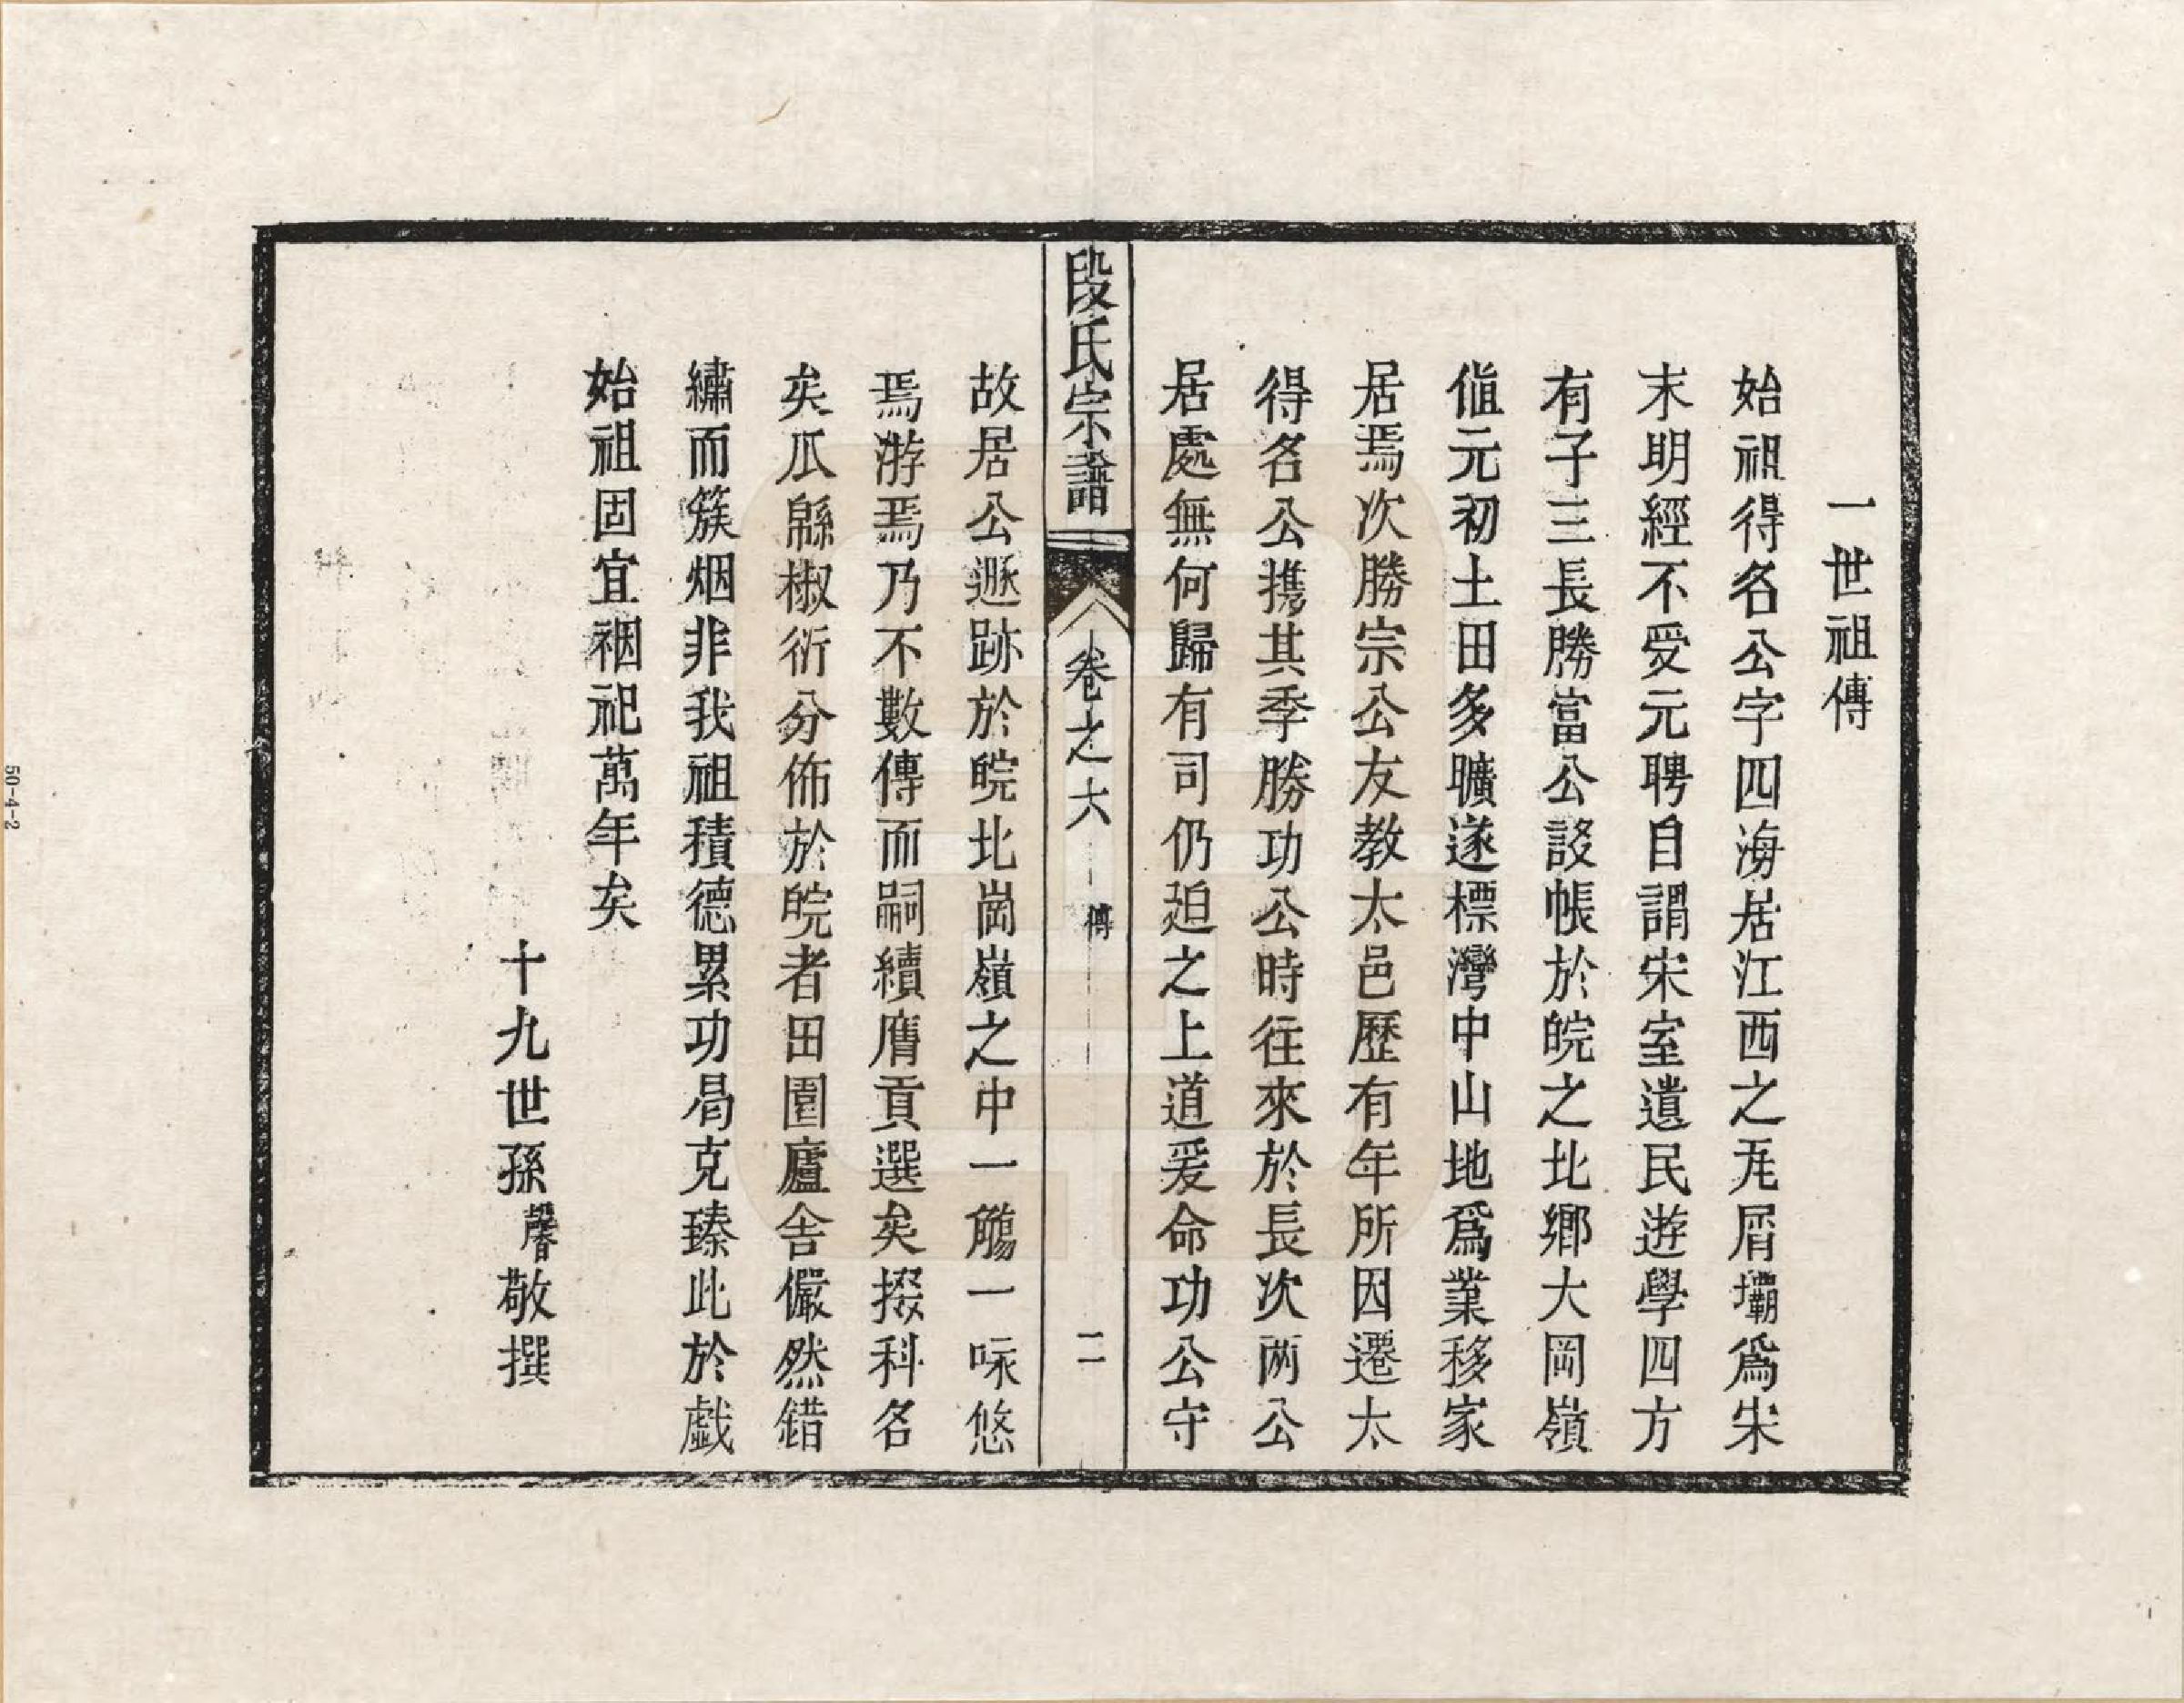 一世祖傳
始祖得名公字四海居江西之兂屑壩爲宋
末明經不受元聘自謂宋室遺民遊學四方
有子三長勝當公設帳於皖之北鄉大岡嶺
值元初土田多曠遂標灣中山地爲業移家
居焉次勝宗公友教太邑歷有年所因遷太
得名公携其季勝功公時往來於長次兩公
居處無何歸有司仍迫之上道爰命功公守
段氏宗譜 卷之六 傳 二
故居公遯跡於皖北崗嶺之中一觴一咏悠
焉游焉乃不數傳而嗣續膺貢選矣掇科名
矣瓜緜椒衍分佈於皖者田園廬舍儼然錯
繡而簇烟非我祖積德累功曷克臻此於戲
始祖固宜禋祀萬年矣
十九世孫馨敬撰
50-4-2